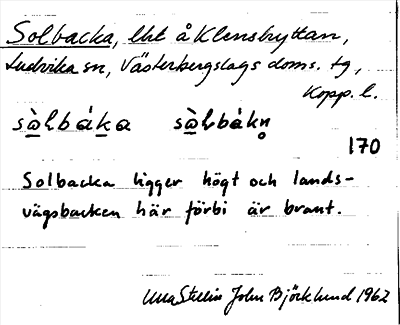 Solbacka, lht å Klenshyttan,
Ludvika sn, Västerbergslags doms. tg,
Kopp. l.
sòlbáka sòlbákn̥
170
Solbacka ligger högt och lands-
vägsbacken här förbi är brant.
John Björklund 1962